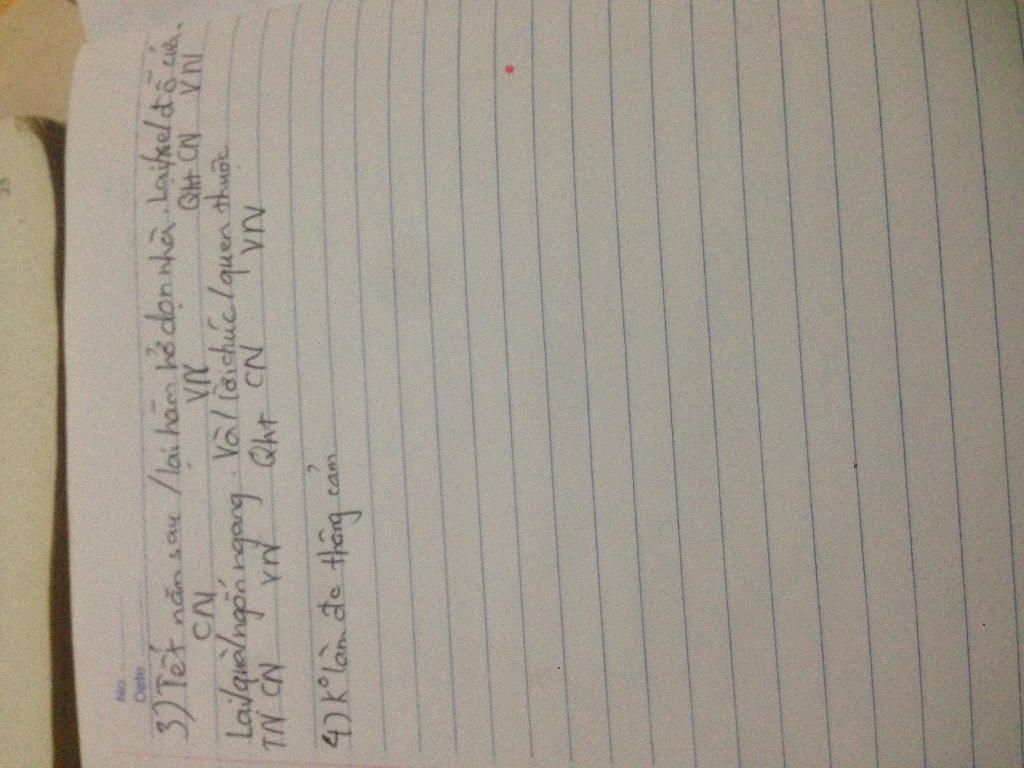 No.
Date
3) Tết năm sau / lại hăm hở dọn nhà. Lại/xe/đỗ cửa.
CN VN Qht CN VN
Lại/quà/ngổn ngang. Và/lời chúc/quen thuộc
TN CN VN Qht CN VN
4) K° làm đc thông cảm